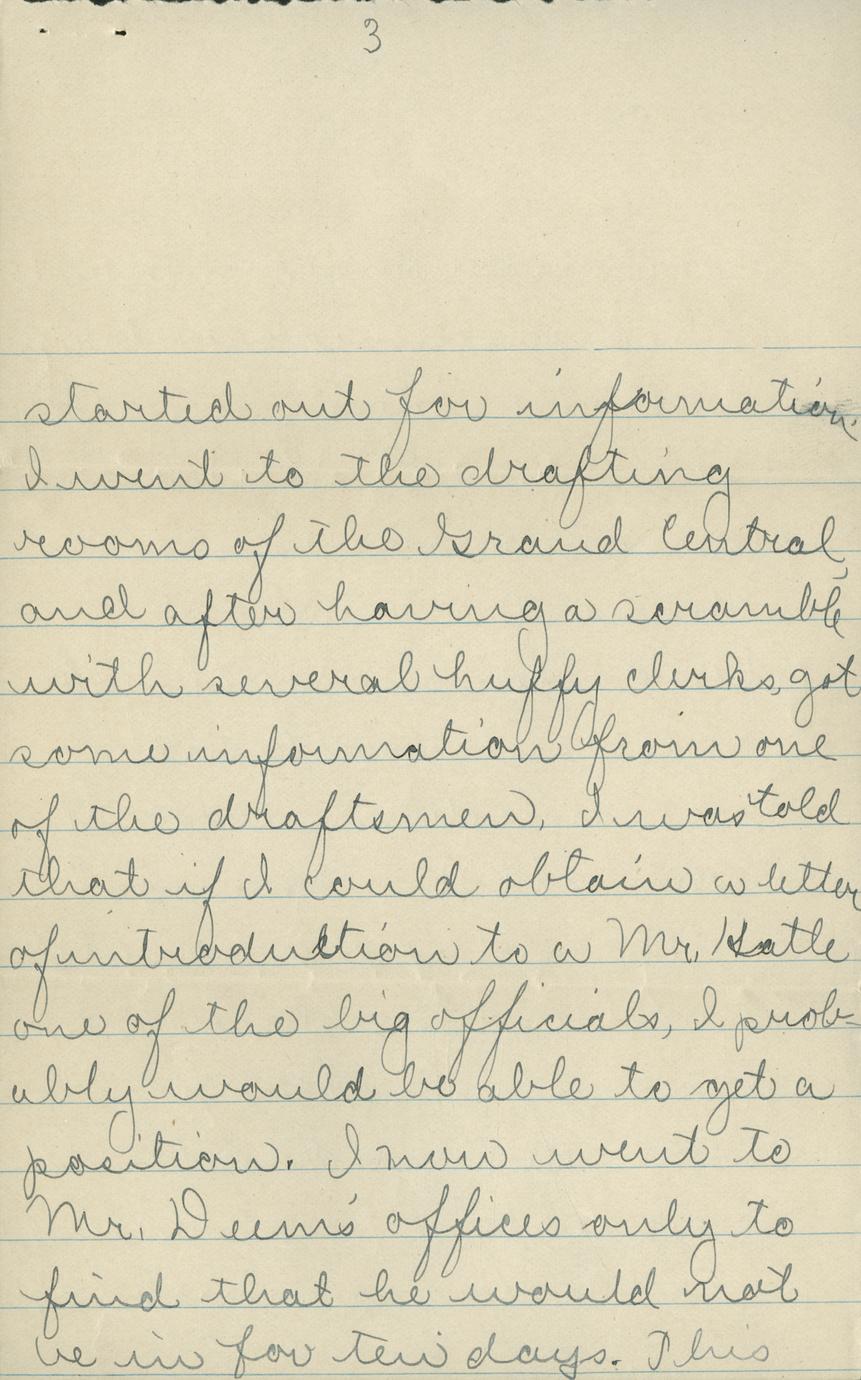 3
started out for information.
I went to the drafting
rooms of the Grand Central,
and after having a scramble
with several huffy clerks, got
some information from one
of the draftsmen. I was told
that if I could obtain a letter
of introduction to a Mr.
one of the big officials, I prob-
ably would be able to get a
position. I now went to
Mr. Deem's offices only to
find that he would not
be in for ten days. This